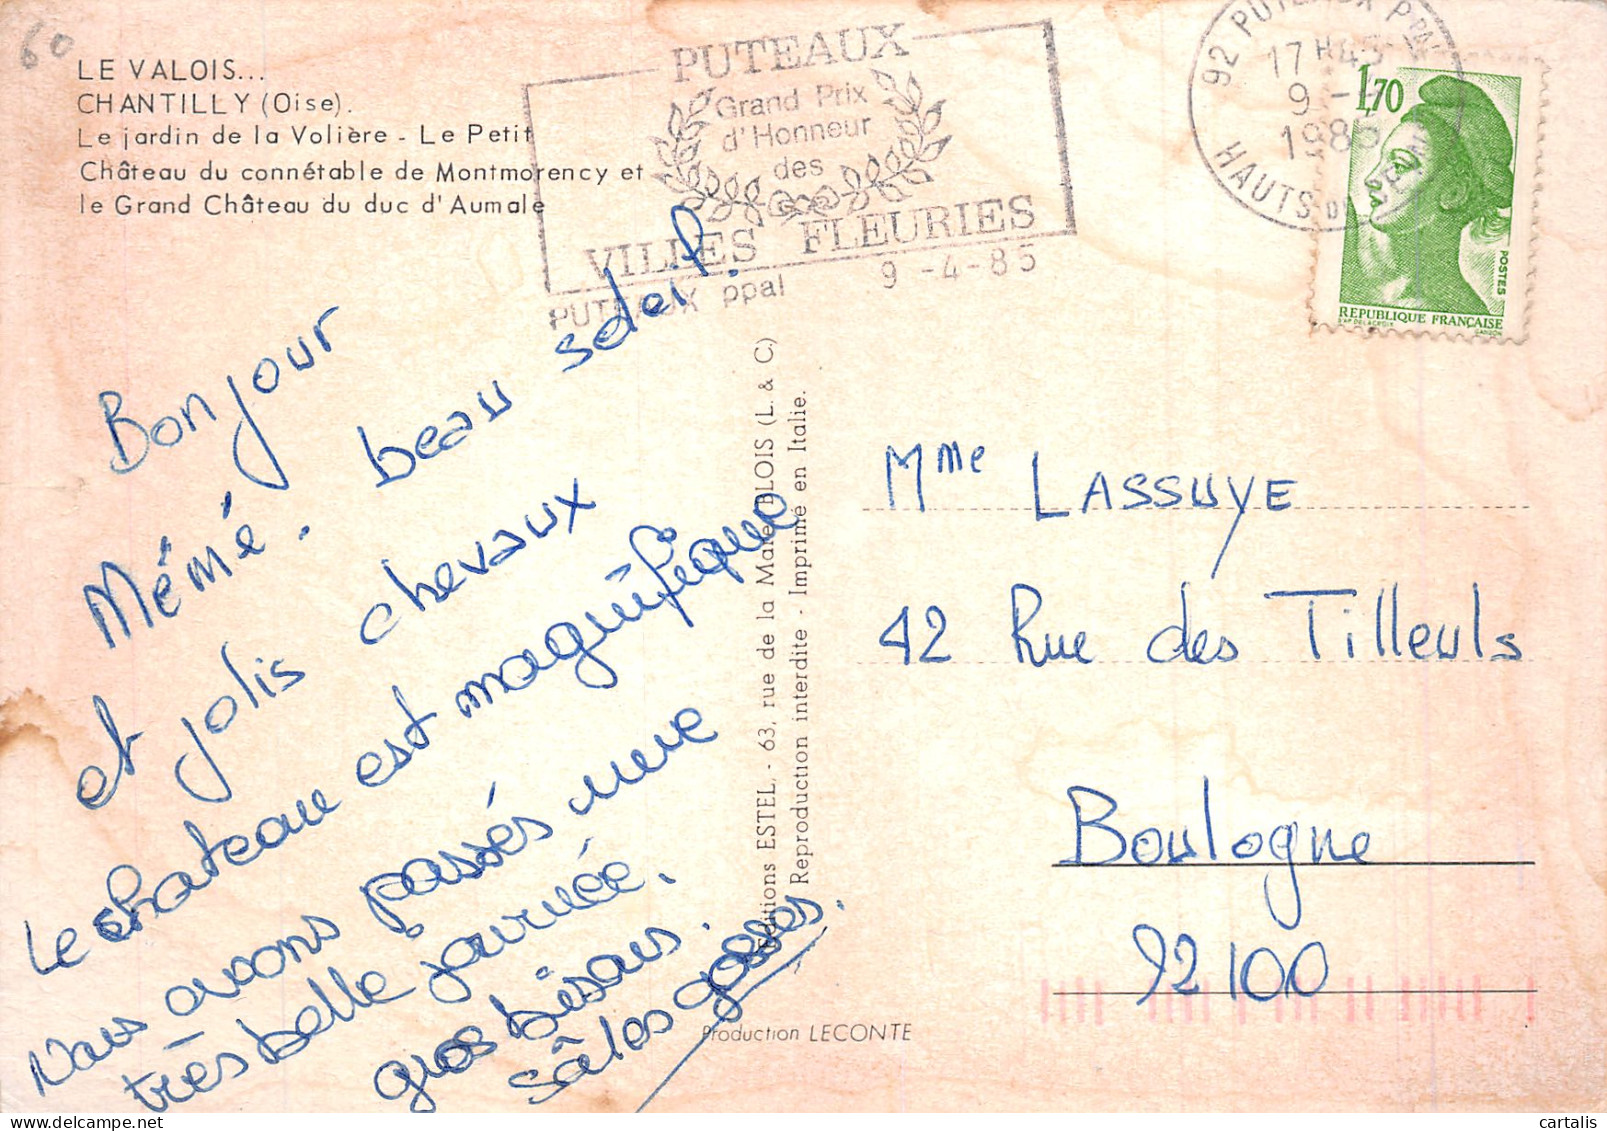 60
LE VALOIS...
CHANTILLY (Oise).
Le jardin de la Volière - Le Petit
Château du connétable de Montmorency et
le Grand Château du duc d'Aumale
PUTEAUX
Grand Prix
d'Honneur
des
VILLES FLEURIES
PUTEAUX ppal 9-4-85
92 PUTEAUX PPAL
17H45
9-4
1985
HAUTS DE SEINE
1,70
POSTES
REPUBLIQUE FRANÇAISE
D'AP. DELACROIX GANDON
Bonjour
Mémé. beau soleil.
et jolis chevaux
Le chateau est magnifique
Nous avons passés une
très belle journée.
gros bisous.
Editions ESTEL, - 63, rue de la Mare BLOIS (L. & C)
Reproduction interdite - Imprimé en Italie.
Production LECONTE
Mme LASSUYE
42 Rue des Tilleuls
Boulogne
92100
cartalis